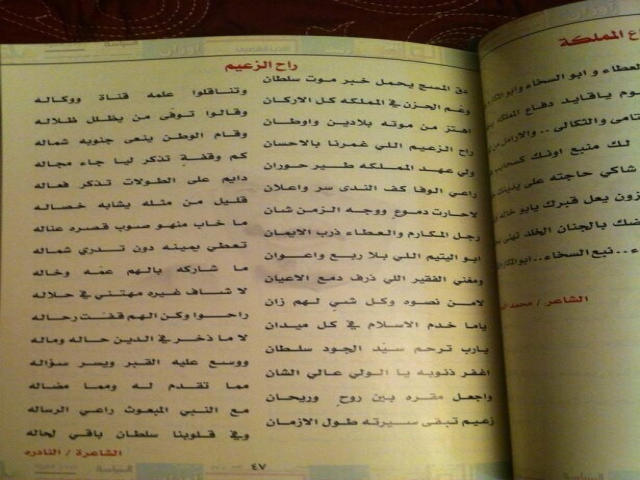 راح الزعيم
دق المسج يحمل خبر موت سلطان
وتناقلوا علمه قناة ووكاله
وعم الحزن في المملكه كل الاركان
وقالوا توفى من يظلل ظلاله
اهتز من موته بلادين واوطان
وقام الوطن ينعى جنوبه شماله
راح الزعيم اللي غمرنا بالاحسان
كم وقفةٍ تذكر ليا جاء مجاله
ولي عهد المملكه طير حوران
دايم على الطولات تذكر فعاله
راعي الوفا كف الندى سر واعلان
قليل من مثله يشابه خصاله
لاحارت دموعٍ ووجه الزمن شان
ما خاب منهو صوب قصره عناله
رجل المكارم والعطاء ذرب الايمان
تعطي يمينه دون تدري شماله
ابو اليتيم اللي بلا ربع واعوان
ما شاركه بالهم عمّه وخاله
ومغني الفقير اللي ذرف دمع الاعيان
لا شاف غيره مهتني في حلاله
لامن نصوه وكل شيٍ لهم زان
راحوا وكن الهم قفت رحاله
ياما خدم الاسلام في كل ميدان
لا ما ذخر في الدين حاله وماله
يارب ترحم سيّد الجود سلطان
ووسع عليه القبر ويسر سؤاله
اغفر ذنوبه يا الولي عالي الشان
مما تقدم له ومما مضاله
واجعل مقره بين روحٍ وريحان
مع النبي المبعوث راعي الرساله
زعيم تبقى سيرته طول الازمان
وفي قلوبنا سلطان باقي لحاله
الشاعرة / النادره
٤٧
ع المملكة
العطاء و ابو السخاء وابو
يوم ياقايد دفاع المملكه
تامى والثكالى .. والارامل من
لك منبع اونك كسحابه
شاكي حاجته على يديك
زون يعل قبرك يابو خالد
ضك بالجنان الخلد تهنى
ء .. نبع السخاء .. ابوالمكارم
الشاعر / محمد